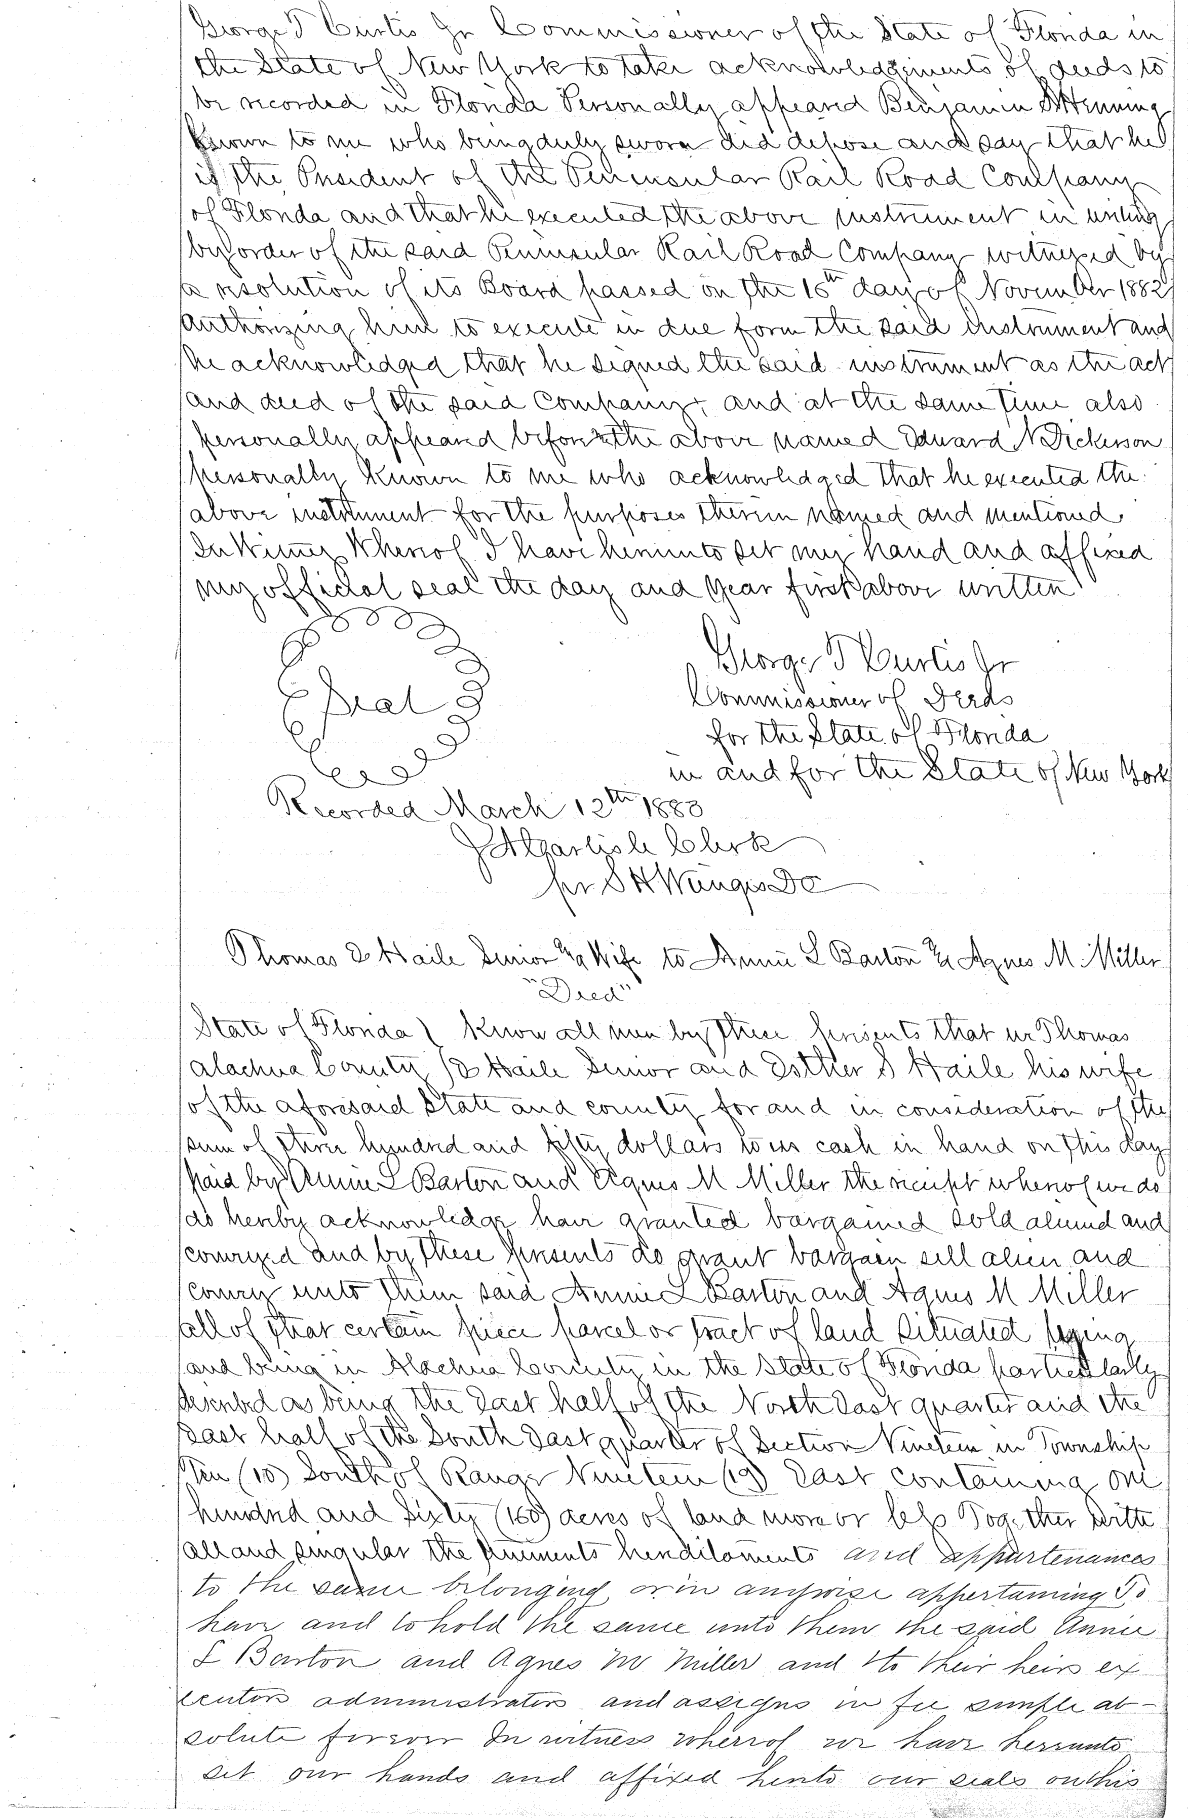 George T Curtis Jr Commissioner of the State of Florida in
the State of New York to take acknowledgements of deeds to
be recorded in Florida Personally appeared Benjamin S Henning
known to me who being duly sworn did depose and say that he
is the President of the Peninsular Rail Road Company
of Florida and that he executed the above instrument in writing
by order of the said Peninsular Rail Road Company witnessed by
a resolution of its Board passed on the 16th day of November 1882
Authorizing him to execute in due form the said instrument and
he acknowledged that he signed the said instrument as the act
and deed of the said Company, and at the same time also
personally appeared before the above named Edward N Dickerson
personally known to me who acknowledged that he executed the
above instrument for the purposes therein named and mentioned
In Witness Whereof I have hereunto set my hand and affixed
my official seal the day and year first above written
Seal
George T Curtis Jr
Commissioner of Deeds
for the State of Florida
in and for the State of New York
Recorded March 12th 1883
J A Carlisle Clerk
per S H Wienges DC
Thomas E Haile Senior & Wife to Annie L Barton & Agnes M Miller
"Deed"
State of Florida } Know all men by these presents that we Thomas
Alachua County } E Haile Senior and Esther S Haile his wife
of the aforesaid State and county for and in consideration of the
sum of three hundred and fifty dollars to us cash in hand on this day
paid by Annie L Barton and Agnes M Miller the receipt whereof we do
do hereby acknowledge have granted bargained sold aliened and
conveyed and by these presents do grant bargain sell alien and
convey unto them said Annie L Barton and Agnes M Miller
all of that certain piece parcel or tract of land situated lying
and being in Alachua County in the State of Florida particularly
described as being the East half of the North East quarter and the
East half of the South East quarter of Section Nineteen in Township
Ten (10) South of Range Nineteen (19) East containing one
hundred and sixty (160) acres of land more or less Together with
all and singular the tenements hereditaments and appurtenances
to the same belonging or in anywise appertaining To
have and to hold the same unto them the said Annie
L Barton and Agnes M Miller and to their heirs ex
ecutors administrators and assigns in fee simple ab-
solute forever In witness whereof we have hereunto
set our hands and affixed hereto our seals on this